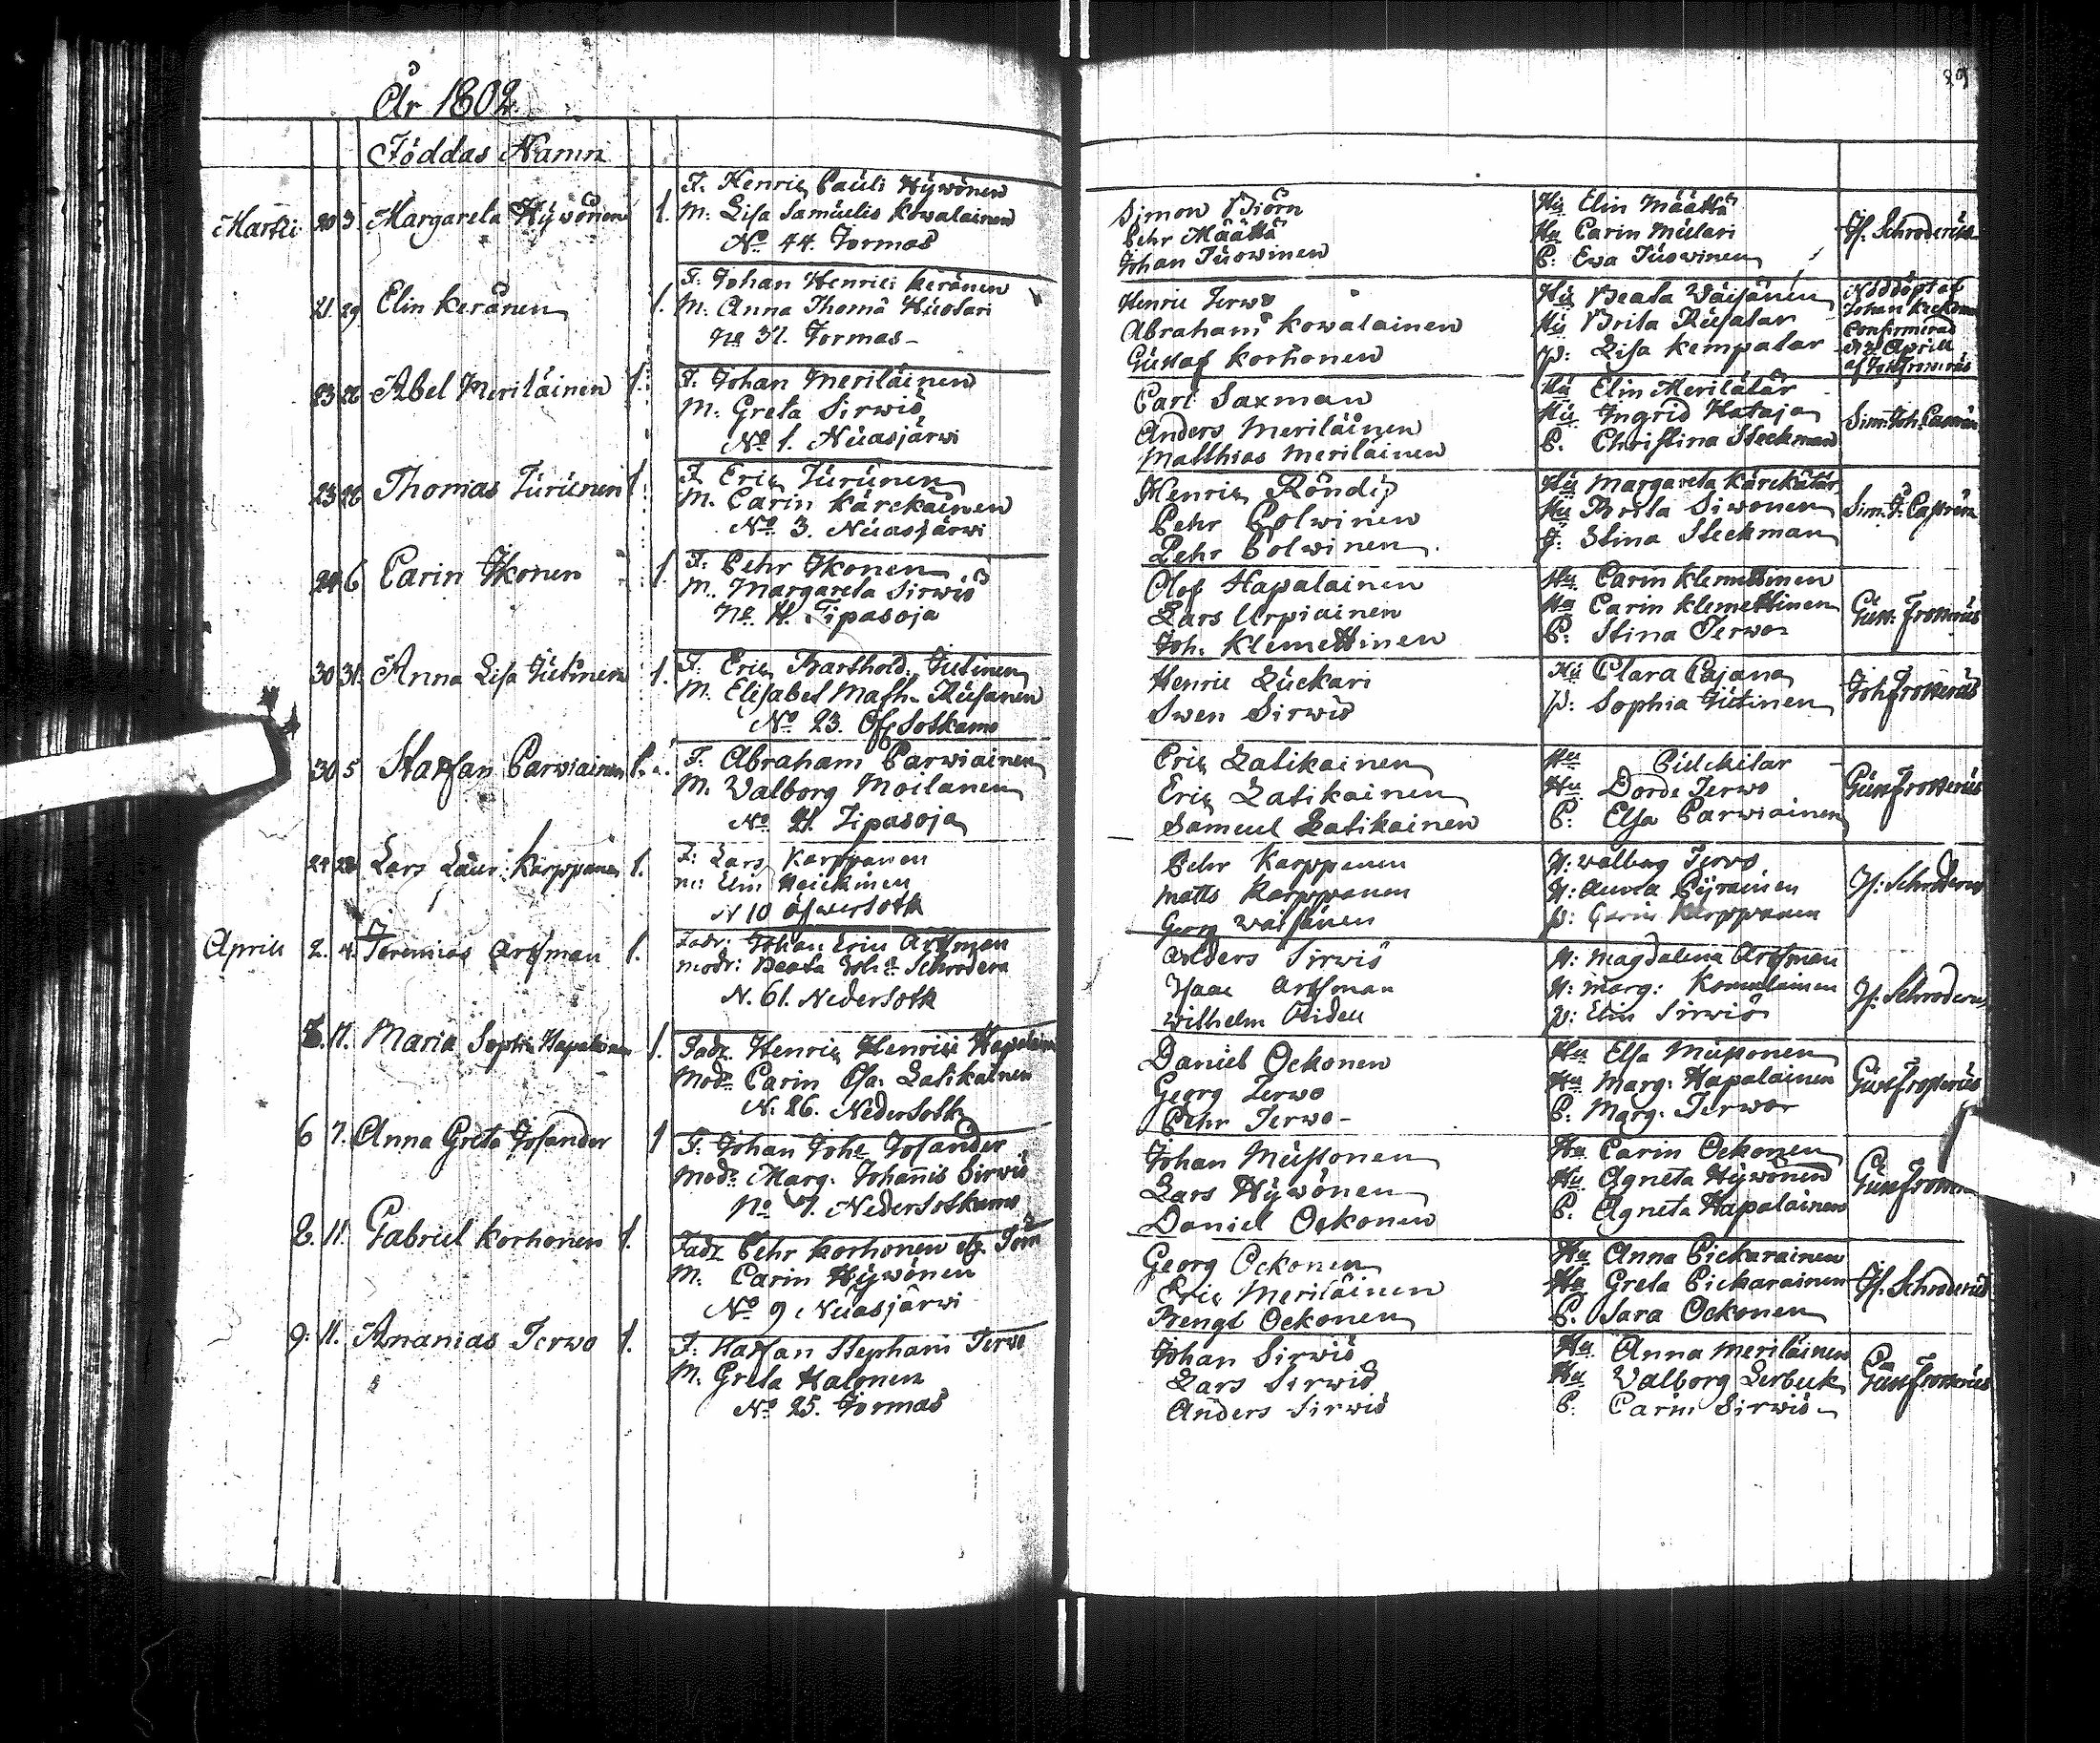 År 1802.
89
Föddas Namn
Martii 20 3. Margareta Hÿwönen 1.
F: Henric Pauli Hÿwönen
M: Lisa Samuelis Kowalainen
No 44. Jormas
Simon Biörn
Pehr Määttä
Johan Juowinen
Hu Elin Määttä
Hu Carin Mulari
P: Ewa Juowinen
Jf. Schroderus
21. 29 Elin Keränen 1.
F: Johan Henrici Keränen
M: Anna Thomæ Huotari
No 31. Jormas
Henric Terwo
Abraham Kowalainen
Gustaf Korhonen
Hu Beata Wäisänen
Hu Brita Rusatar
p: Lisa Kempatar
Nöddöpt af
Johan
Confirmerad
Aprill
af Joh Frosterus
23 26 Abel Meriläinen 1.
F: Johan Meriläinen
M: Greta Sirwiö
No 1. Nuasjärwi
Carl Saxman
Anders Meriläinen
Matthias Meriläinen
Hu Elin Merilätär
Hu Ingrid Hataja
P. Christina Steckman
Sim: Joh: Castrén
23 26 Thomas Turunen 1
F Eric Turunen
M. Carin Kärckäinen
No 3. Nuasjärwi
Henric Röndy
Pehr Polwinen
Pehr Polwinen
Hu Margareta Kärckätär
Hu Brita Siwonen
P: Stina Steckman
Sim. J. Castrén
24 6 Carin Ikonen 1.
F: Pehr Ikonen
M. Margareta Sirwiö
No 11. Tipasoja
Olof Hapalainen
Lars Urpiainen
Joh. Klemettinen
Hu Carin Klemettinen
Hu Carin Klemettinen
P: Stina Terwo
Gust. Frosterus
30 31. Anna Lisa Jutinen 1.
F: Eric Barthold: Jutinen
M. Elisabet Math. Rusanen
No 23. Öf Sotkamo
Henric Luckari
Swen Sirwiö
Hu Clara Cajana
p: Sophia Jutinen
Joh Frosterus
30 5 Staffan Parwiainen 1.
F: Abraham Parwiainen
M. Walborg Moilanen
No 21. Tipasoja
Eric Latikainen
Eric Latikainen
Samuel Latikainen
Hu
Hu Dorde Terwo
P: Elsa Parwiainen
Gust Frosterus
Lars Lauri: Karppanen 1.
F: Lars Karppanen
m: Elin Heickinen
N 10 öfwersotk
Pehr Karppanen
Matts Karppanen
Georg Wäisänen
H: Walborg Terwo
H: Anna Pÿrainen
p: Carin Karppanen
Jf: Schroderus
Aprill 2. 4. Jeremias Artman 1.
Fadr: Johan Erici Artman
modr: Beata Joh:s Schrodera
N. 61. Nedersotk
Anders Sirwiö
Isaac Artman
Wilhelm Aiden
H: Magdalena Artman
H: Marg: Komulainen
p: Elin Sirwiö
Jf: Schroderus
11. Maria Sophia Hapalainen 1.
Fadr Henric Henrici Hapalainen
Modr Carin Esa: Latikainen
N. 26. Nedersotk
Daniel Ockonen
Georg Terwo
Pehr Terwo
Hu Elsa Mustonen
Hu Marg: Hapalainen
P. Marg. Terwo
Gust Frosterus
6 7. Anna Greta Josander 1
F: Johan Joh: Josander
Modr Marg. Johannis Sirwiö
No 7. Nedersotkamo
Johan Mustonen
Lars Hÿwönen
Daniel Ockonen
Hu Carin Ockonen
Hu Agneta Hÿwönen
P. Agneta Hapalainen
Gust Frosterus
8. 11. Gabriel Korhonen 1.
Fadr Pehr Korhonen
M. Carin Hÿwönen
No 9 Nuasjärwi
Georg Ockonen
Eric Meriläinen
Bengt Ockonen
Hu Anna Pickarainen
Hu Greta Pickarainen
P. Sara Ockonen
Jf. Schroderus
9. 11. Ananias Terwo 1.
F: Staffan Stephani Terwo
M. Greta Halonen
No 25. Jormas
Johan Sirwiö
Lars Sirwiö
Anders Sirwiö
Hu Anna Meriläinen
Hu Walborg Lerbeck
P. Carin Sirwiö
Gust Frosterus